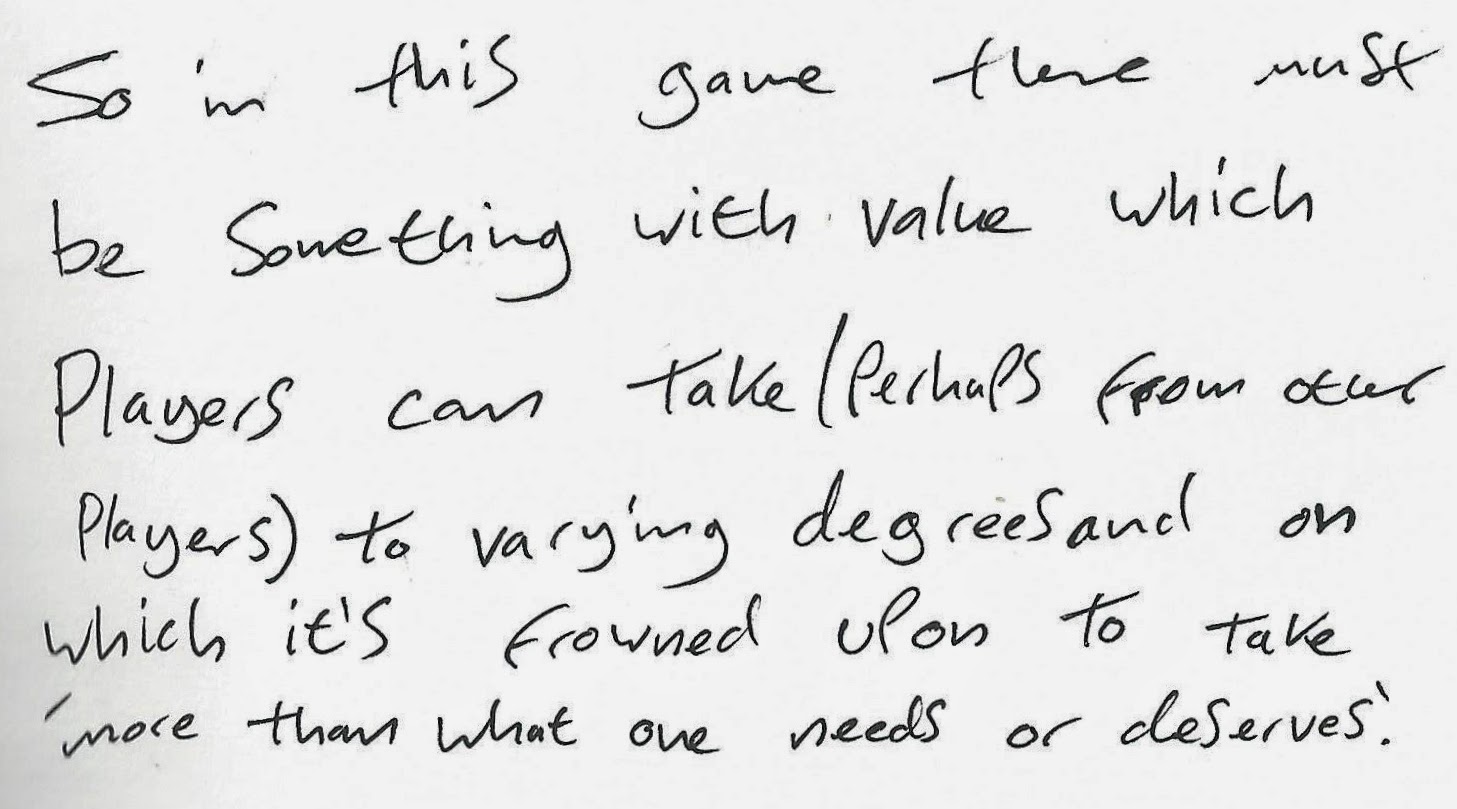 So in this game there must
be something with value which
Players can take (Perhaps from other
Players) to varying degrees and on
which it's frowned upon to take
'more than what one needs or deserves'.